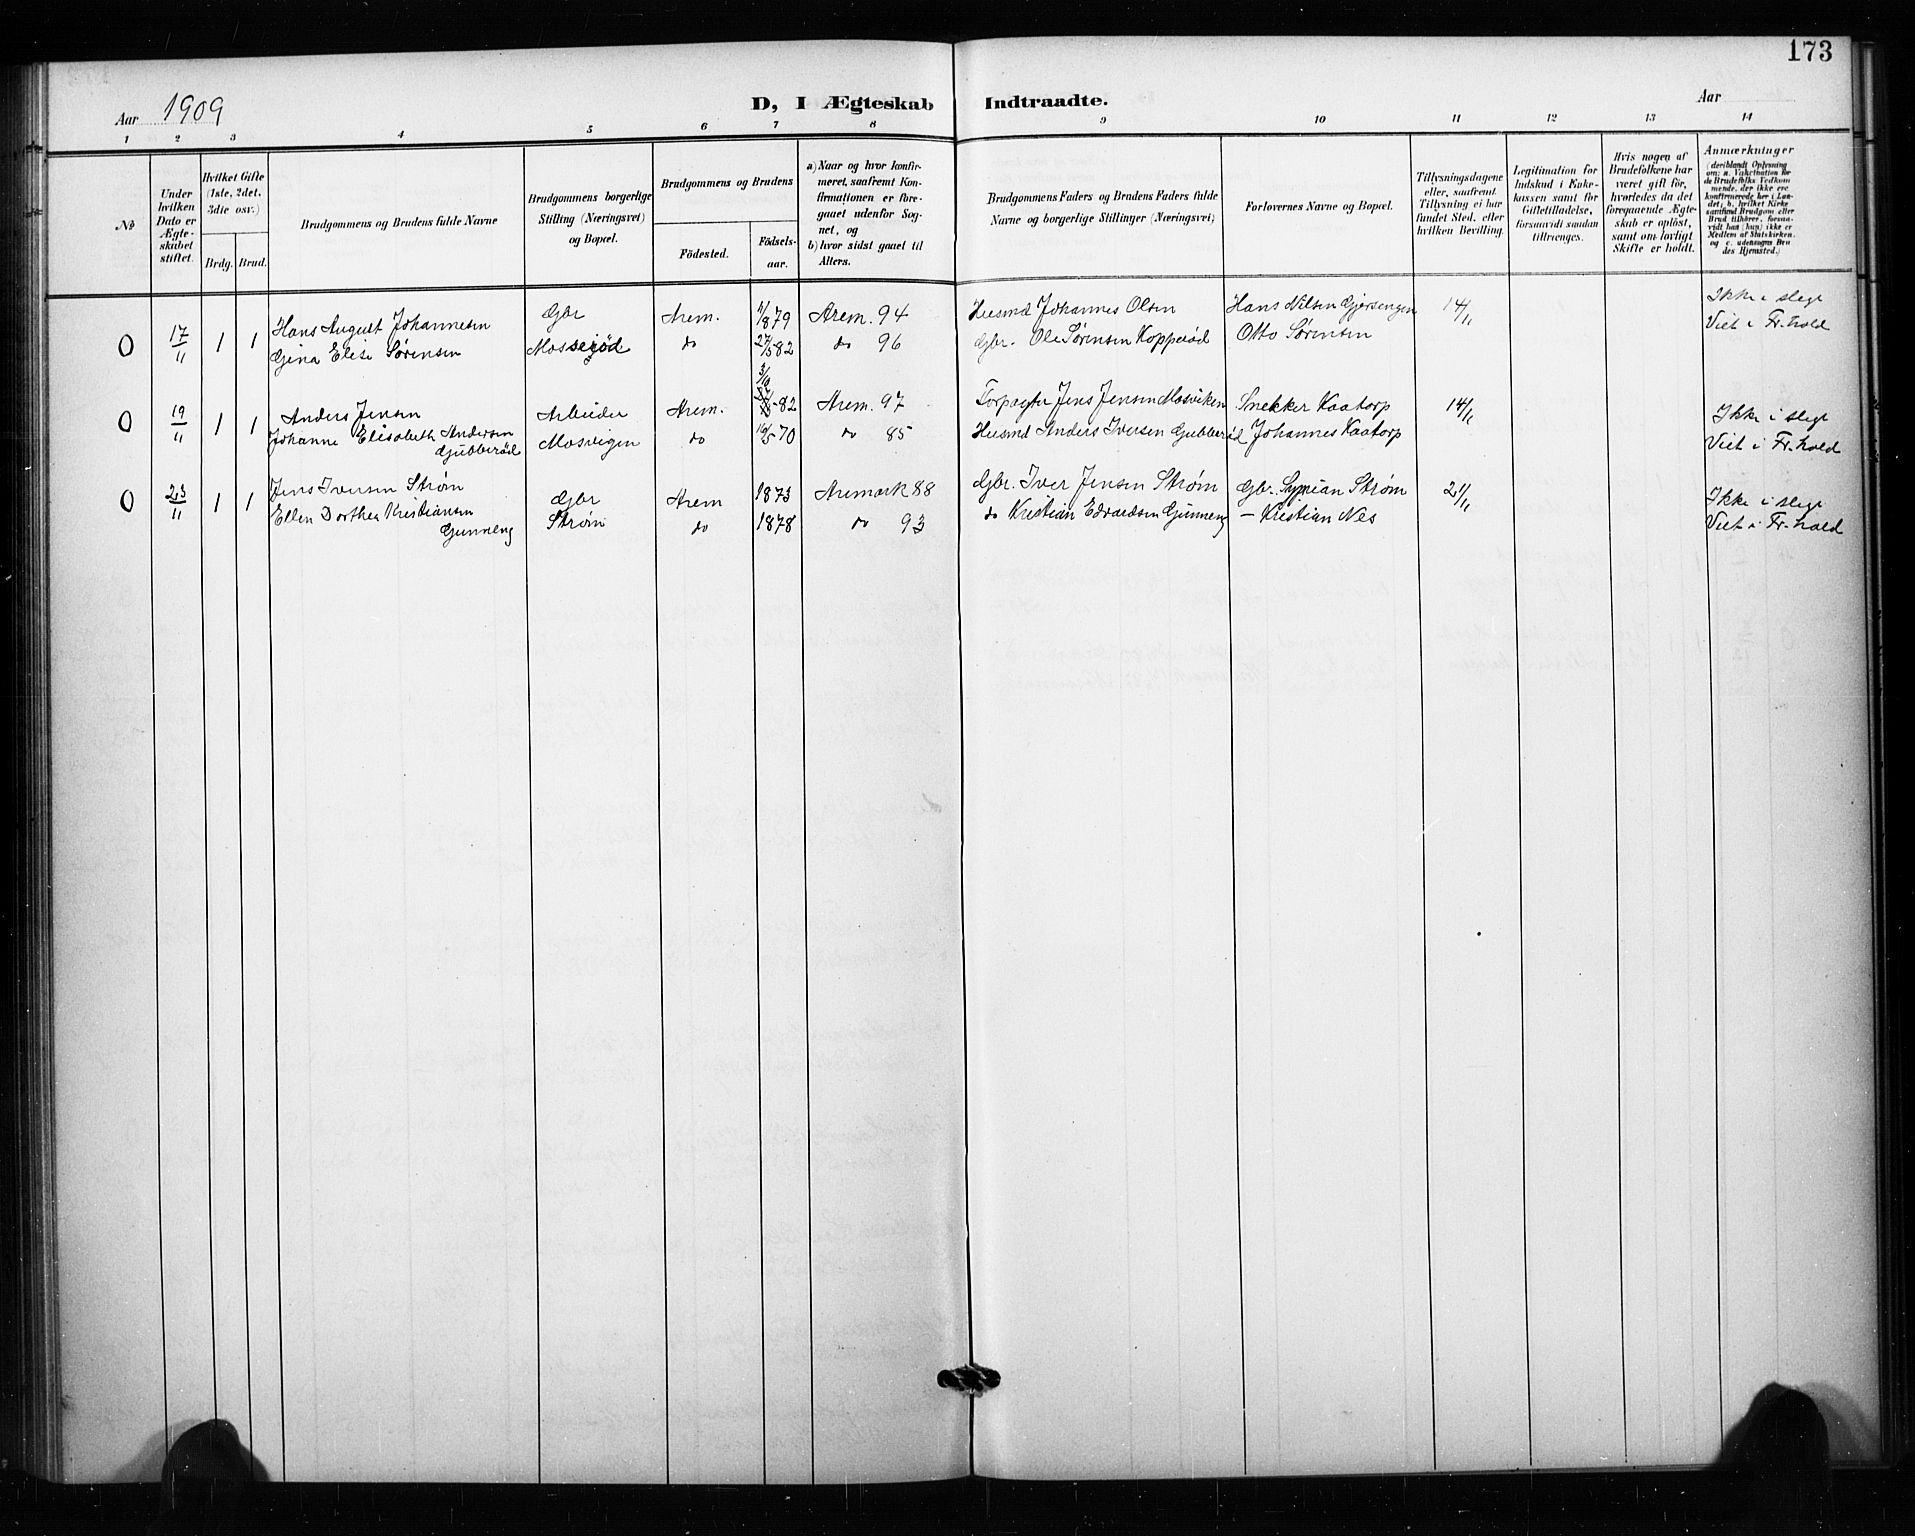 173
Aar 1909 D, I Ægteskab Indtraadte. Aar
1 2 3 4 5 6 7 8 9 10 11 12 13 14
№
Under
hvilken
Dato er
Ægte-
skabet
stiftet.
Hvilket Gifte
(1ste, 2det,
3die osv.)
Brdg. Brud.
Brudgommens og Brudens fulde Navne
Brudgommens borgerlige
Stilling (Næringsvei)
og Bopæl.
Brudgommens og Brudens
Fødested.
Fødsels-
aar.
a) Naar og hvor konfir-
meret, saafremt Kon-
firmationen er fore-
gaaet udenfor Sog-
net, og
b) hvor sidst gaaet til
Alters.
Brudgommens Faders og Brudens Faders fulde
Navne og borgerlige Stillinger (Næringsvei)
Forlovernes Navne og Bopæl.
Tillysningsdagene
eller, saafremt
Tillysning ei har
fundet Sted, efter
hvilken Bevilling.
Legitimation for
Indskud i Enke-
kassen samt for
Giftetilladelse,
forsaavidt saadan
tiltrænges.
Hvis nogen af
Brudefolkene har
været gift før,
hvorledes da det
foregaaende Ægte-
skab er opløst,
samt om lovligt
Skifte er holdt.
Anmærkninger
(deriblandt Oplysning
om: a. Vakcination for
de Brudefolks Vedkom-
mende, der ikke ere
konfirmerede her i Lan-
det; b. hvilket Kirke-
samfund Brudgom eller
Brud tilhører, forsaa-
vidt han (hun) ikke er
Medlem af Statskirken,
og c. udensogns Bru-
des Hjemsted.)
0 17/11 1 1 Hans August Johannesen Gbr Arem. 1/8 79 Arem. 94 Husmd Johannes Olsen Hans Nilsen Gjersengen 14/11 Ikke i slegt
Gina Elise Sørensen Mosserød do 27/5 82 do 96 Gbr. Ole Sørensen Kopperød Otto Sørensen Viet i Fr.hald
0 19/11 1 1 Anders Jensen Arbeider Arem. 3/10 82 Arem. 97 Forpagter Jens Jensen Mosviken Snekker Kaatorp 14/11 Ikke i slegt
Johanne Elisabeth Andersen Mosvigen do 16/5 70 do 85 Husmd Anders Iversen Gubberød Johannes Kaatorp Viet i Fr.hald
Gubberød
0 23/11 1 1 Jens Iversen Strøm Gbr Arem 1873 Aremark 88 Gbr. Iver Jensen Strøm Gbr. Syprian Strøm 21/11 Ikke i slegt
Ellen Dorthea Kristiansen Strøm do 1878 do 93 do Kristian Edvardsen Gunneng — Kristian Nes Viet i Fr.hald
Gunneng